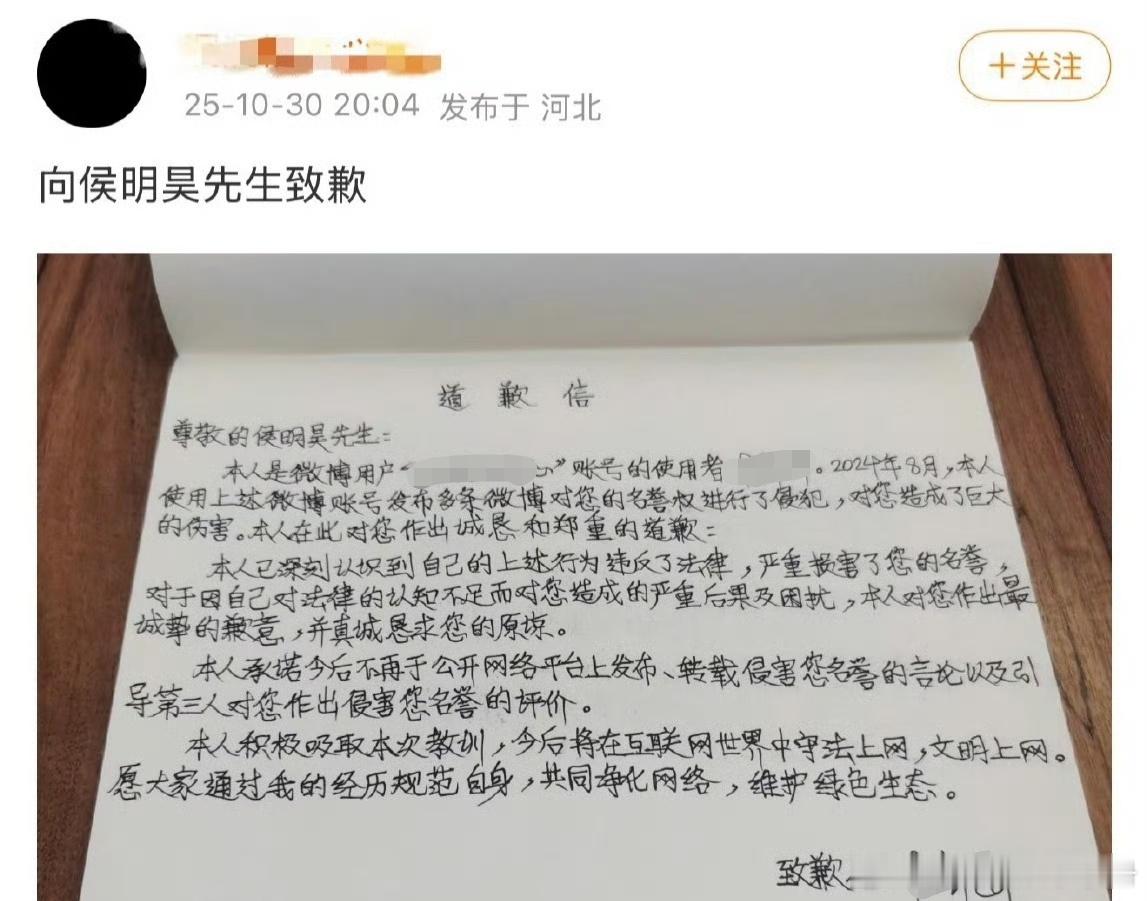 25-10-30 20:04 发布于 河北
+关注
向侯明昊先生致歉
道歉信
尊敬的侯明昊先生:
本人是微博用户“ ”账号的使用者 。2024年8月,本人
使用上述微博账号发布多条微博对您的名誉权进行了侵犯,对您造成了巨大
的伤害。本人在此对您作出诚恳和郑重的道歉:
本人已深刻认识到自己的上述行为违反了法律,严重损害了您的名誉,
对于因自己对法律的认知不足而对您造成的严重后果及困扰,本人对您作出最
诚挚的歉意,并真诚恳求您的原谅。
本人承诺今后不再于公开网络平台上发布、转载侵害您名誉的言论以及引
导第三人对您作出侵害您名誉的评价。
本人积极吸取本次教训,今后将在互联网世界中守法上网,文明上网。
愿大家通过我的经历规范自身,共同净化网络,维护绿色生态。
致歉